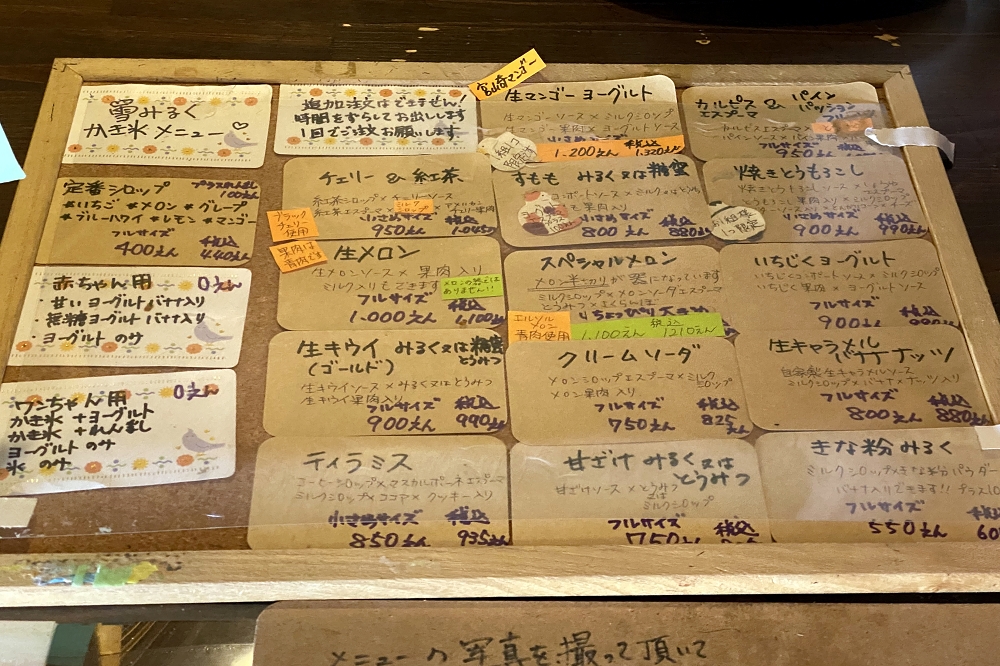 雪みるく
かき氷メニュー♡
追加注文はできません!
時間をずらしてお出しします
1回でご注文お願いします
宮崎マンゴー
生マンゴー ヨーグルト
生マンゴーソース×ミルクシロップ
生マンゴー果肉×ヨーグルトソース
1.200えん 税込 1.320えん
カルピス & パイン
エスプーマ パッション
フルーツ
カルピスエスプーマ×
950えん
定番シロップ プラスれんまし
100えん
#いちご #メロン #グレープ
#ブルーハワイ #レモン #マンゴー
フルサイズ 税込
400えん 440えん
チェリー & 紅茶
紅茶シロップ×チェリーソース
紅茶エスプーマ×ミルクシロップ
ブラック
チェリー
使用
小さめサイズ 税込
950えん 1.045えん
すもも みるく又は糖蜜
小さめサイズ 税込
800えん 880えん
焼きとうもろこし
お1組様
1つ限定
小さめサイズ 税込
900えん 990えん
赤ちゃん用 0えん
・甘いヨーグルトバナナ入り
・無糖ヨーグルトバナナ入り
・ヨーグルトのみ
果肉は
青肉です
生メロン
生メロンソース× 果肉入り
ミルク入りもできます
メロンの器では
ありません!!
フルサイズ 税込
1.000えん 1,100えん
スペシャルメロン
メロン半切りが器になっています
ミルクシロップ×メロンソーダエスプーマ
とうみつ×さくらんぼ
ちょっぴり大きめ
エルソル
メロン
青肉使用
1.100えん 税込 1210えん
いちじくヨーグルト
いちじくコンポートソース×ミルクシロップ
いちじく果肉×ヨーグルトソース
フルサイズ 税込
900えん 990えん
ワンちゃん用 0えん
かき氷+ヨーグルト
かき氷+れんまし
ヨーグルトのみ
氷のみ
生キウイ みるく又は糖蜜
(ゴールド) とうみつ
生キウイソース×みるく又はとうみつ
生キウイ果肉入り
フルサイズ 税込
900えん 990えん
クリームソーダ
メロンシロップエスプーマ×ミルク
シロップ
メロン果肉入り
フルサイズ 税込
750えん 825えん
生キャラメル
バナナナッツ
自家製生キャラメルソース
ミルクシロップ×バナナ×ナッツ入り
フルサイズ 税込
800えん 880えん
ティラミス
コーヒーシロップ×マスカルポーネエスプーマ
ミルクシロップ×ココア×クッキー入り
小さめサイズ 税込
850えん 935えん
甘ざけ みるく又は
とうみつ
甘ざけソース×とうみつ
又は
ミルクシロップ
フルサイズ 税込
750えん
きな粉みるく
ミルクシロップ×きな粉パウダー
バナナ入りできます!!
フルサイズ 税込
550えん
メニューの写真を撮って頂いて